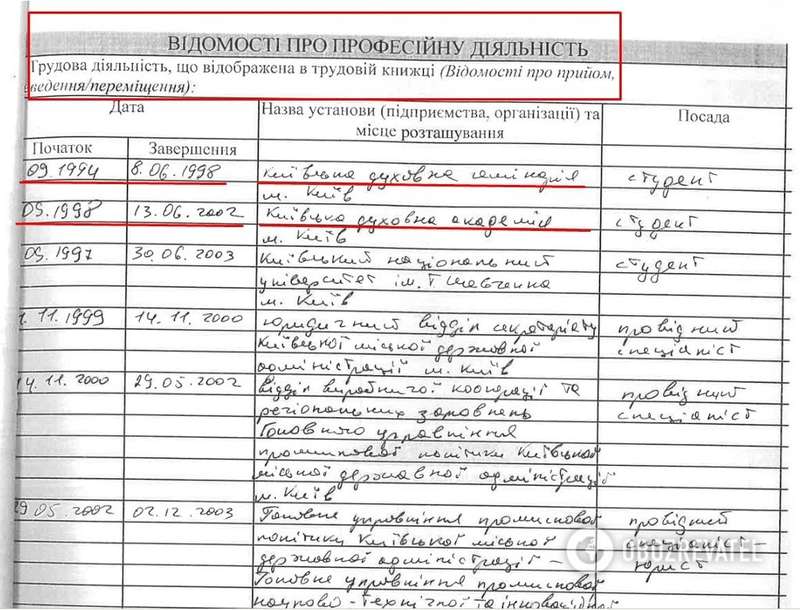 ВІДОМОСТІ ПРО ПРОФЕСІЙНУ ДІЯЛЬНІСТЬ
Трудова діяльність, що відображена в трудовій книжці (Відомості про прийом,
ведення/переміщення):
Дата
Назва установи (підприємства, організації) та
місце розташування
Посада
Початок Завершення
09.1994 8.06.1998 Київська духовна семінарія студент
м. Київ
09.1998 13.06.2002 Київська духовна академія студент
м. Київ
09.1997 30.06.2003 Київський національний студент
університет ім. Т Шевченка
м. Київ
.11.1999 14.11.2000 юридичний відділ секретаріату провідний
Київської міської державної спеціаліст
адміністрації м. Київ
14.11.2000 29.05.2002 відділ виробничої кооперації та провідний
регіональних замовлень спеціаліст
Головного управління
промислової політики Київської
міської державної адміністрації
м. Київ
29.05.2002 02.12.2003 Головне управління промислової провідний
політики Київської міської спеціаліст
державної адміністрації – юрист
Головне управління промислової
науково-технічної та інноваційної
OBOZREVATEL